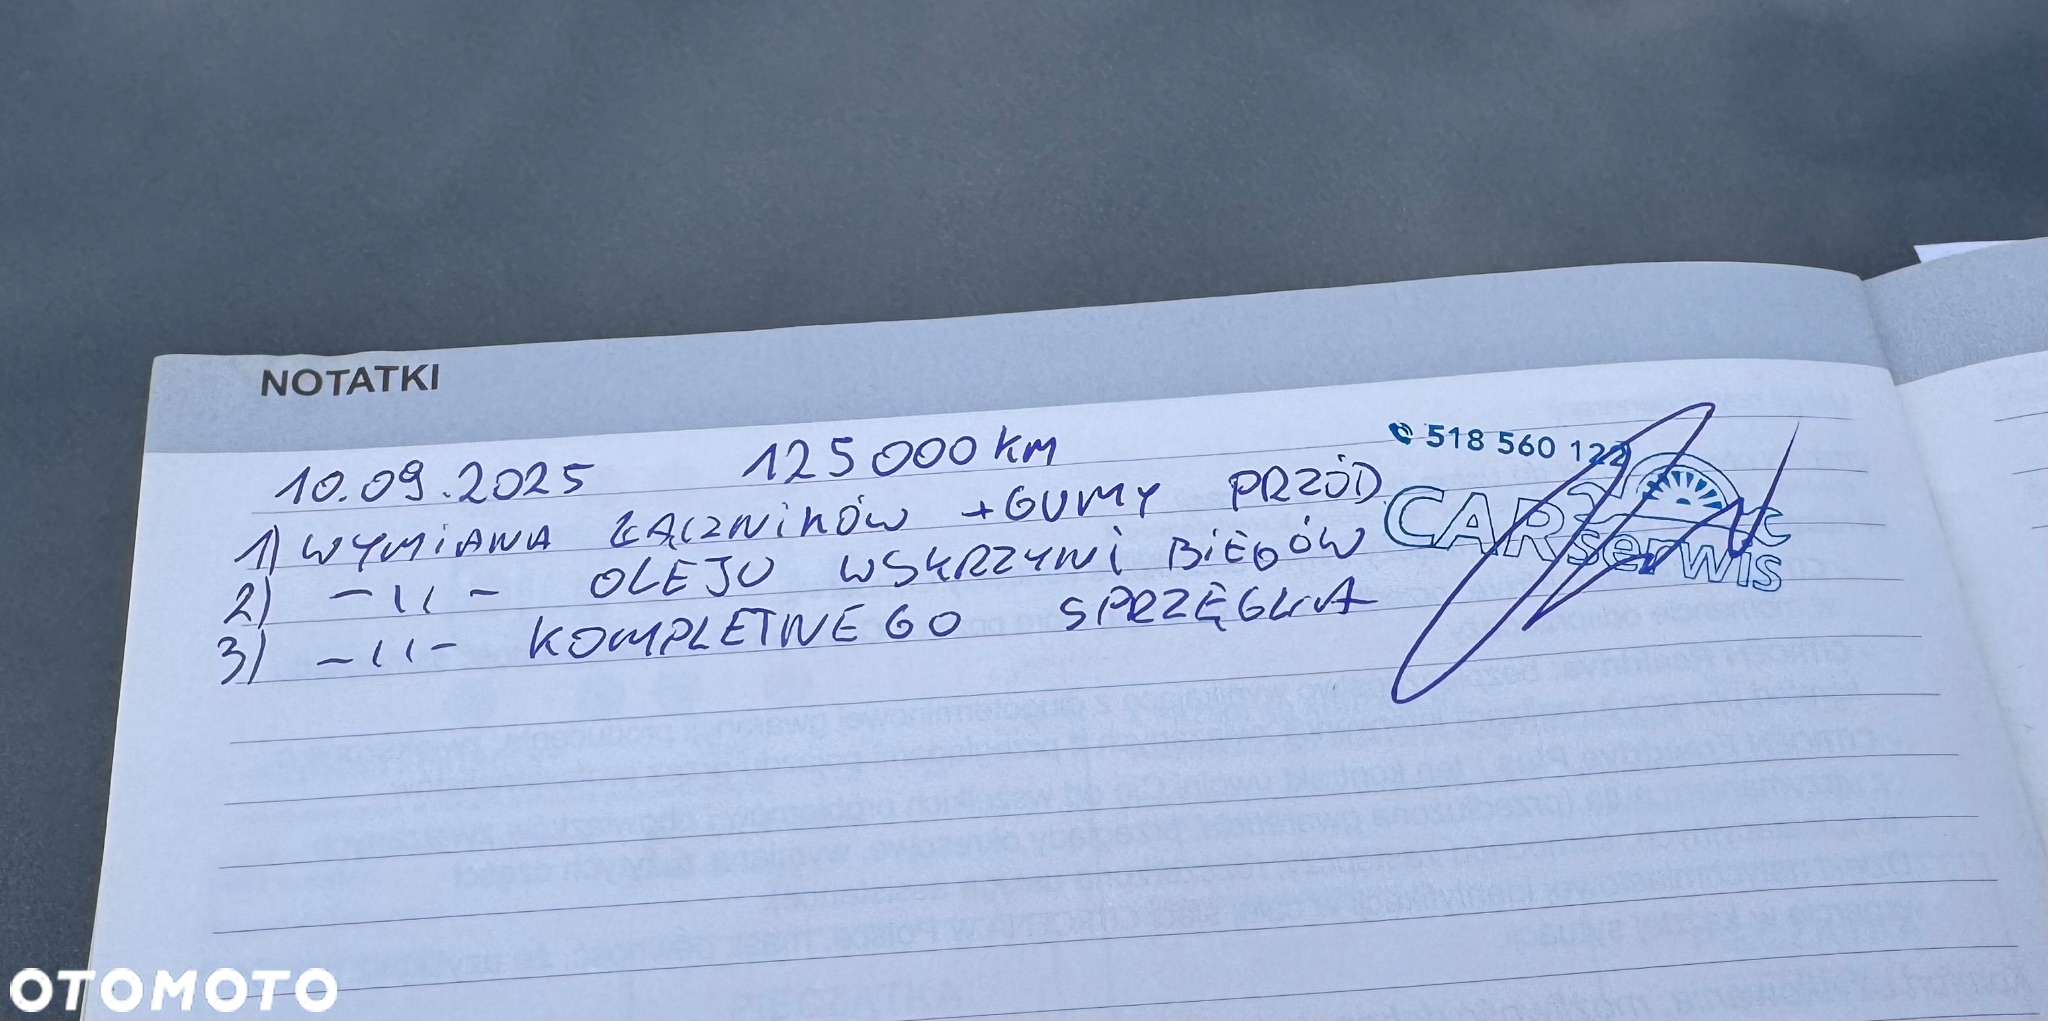 NOTATKI
10.09.2025 125000 km
518 560 122
1) WYMIANA ŁĄCZNIKÓW + GUMY PRZÓD
CAR serwis
2) -11- OLEJU W SKRZYNI BIEGÓW
3) -11- KOMPLETNEGO SPRZĘGŁA
OTOMOTO